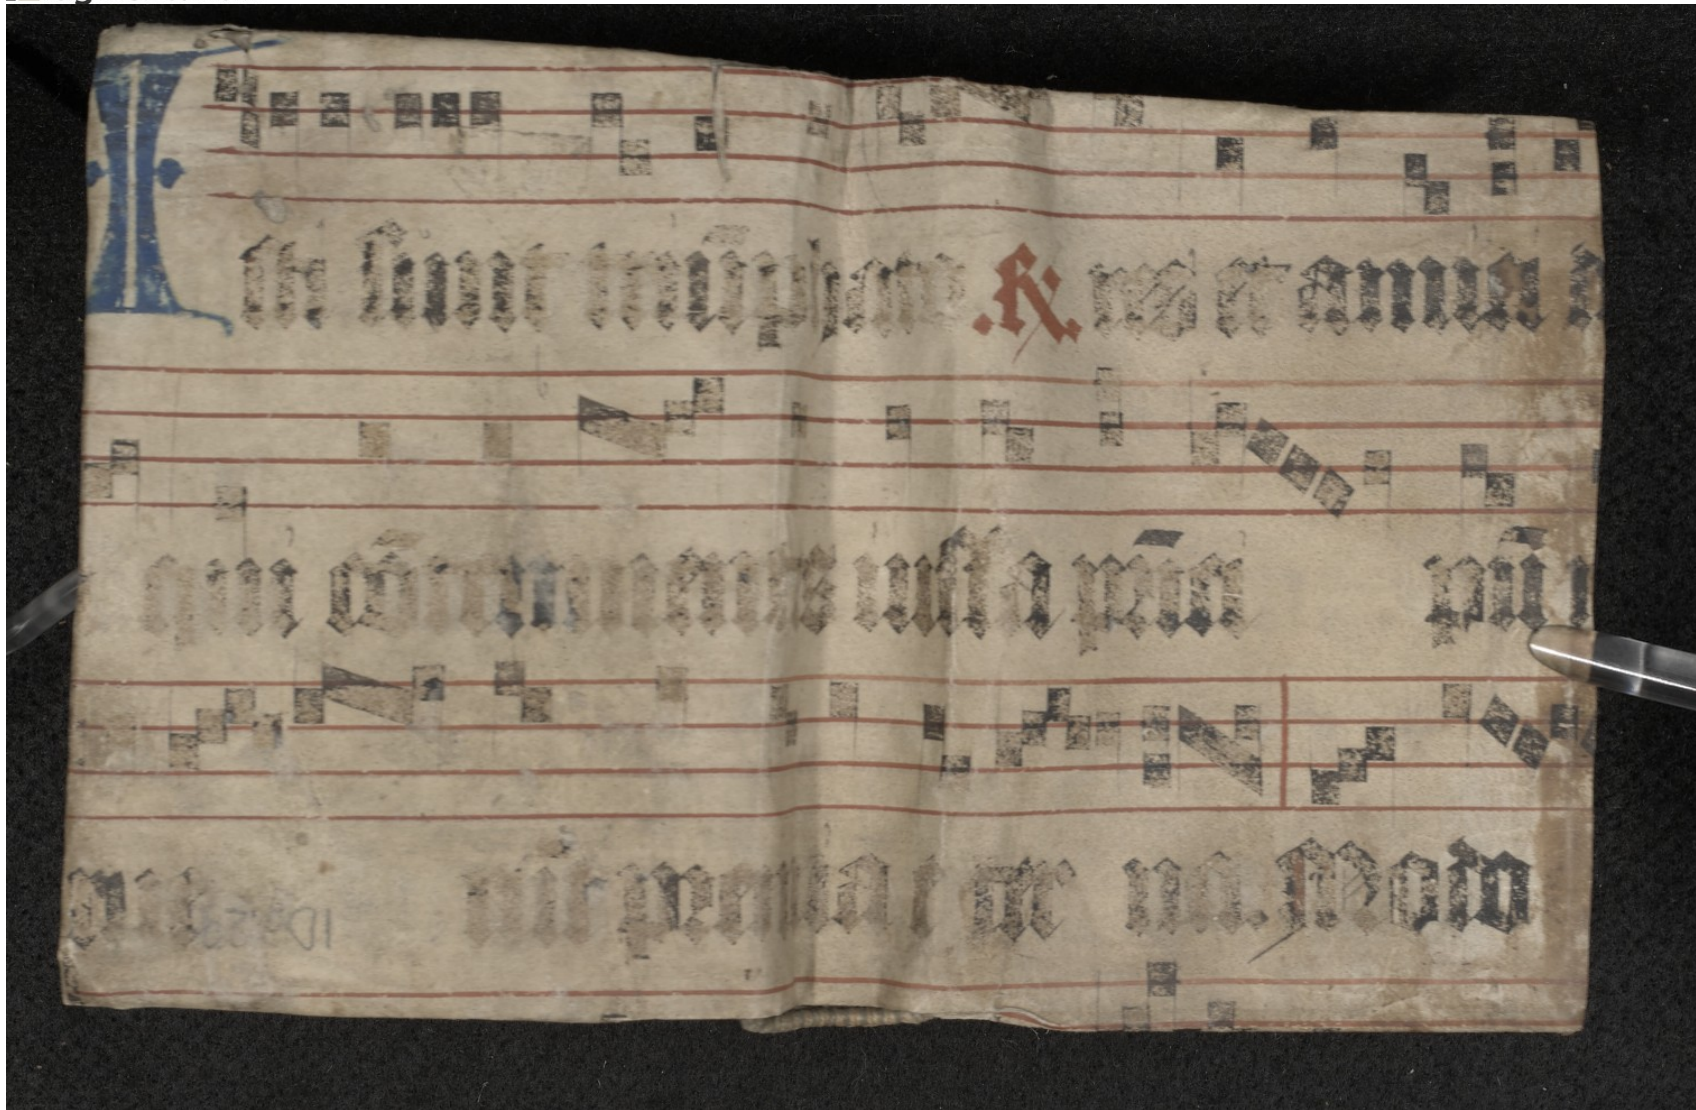 Isti sunt triūphato .℟. res et amici
qui cōtempnentes iussa prīci pū
eru erūt premia e ter na. Modo